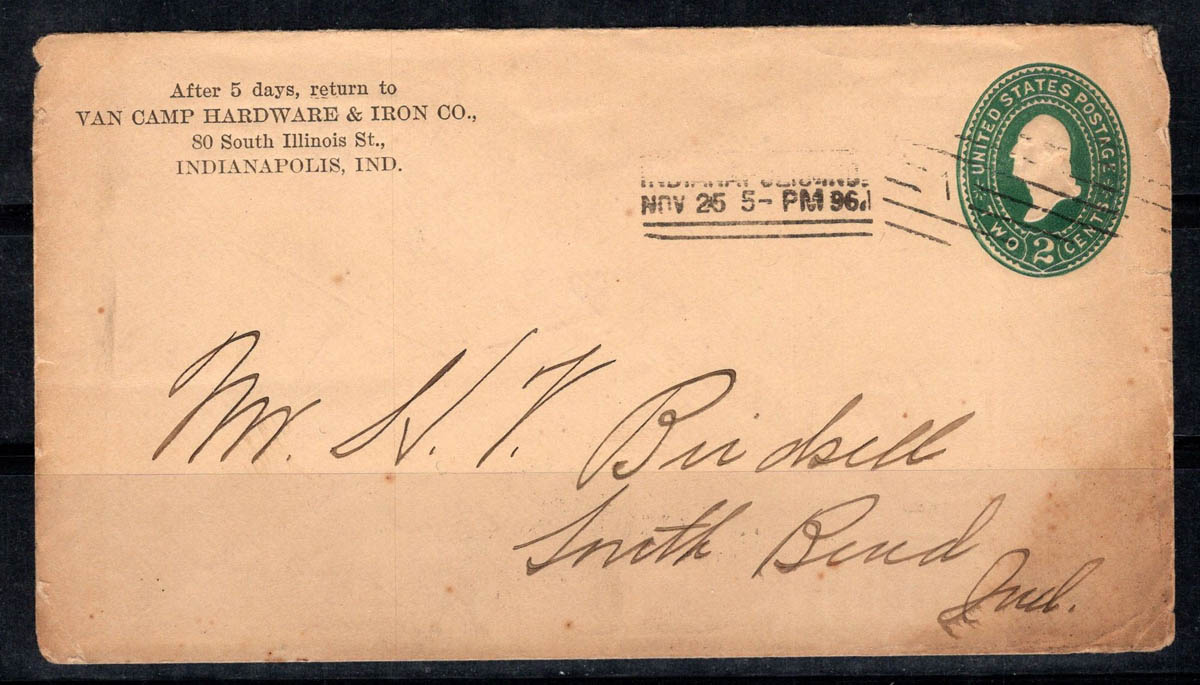 After 5 days, return to
VAN CAMP HARDWARE & IRON CO.,
80 South Illinois St.,
INDIANAPOLIS, IND.
UNITED STATES POSTAGE
TWO 2 CENTS
INDIANAPOLIS, IND.
NOV 25 5 - PM 96
1
Mr. H. V. Birdsell
South Bend
Ind.